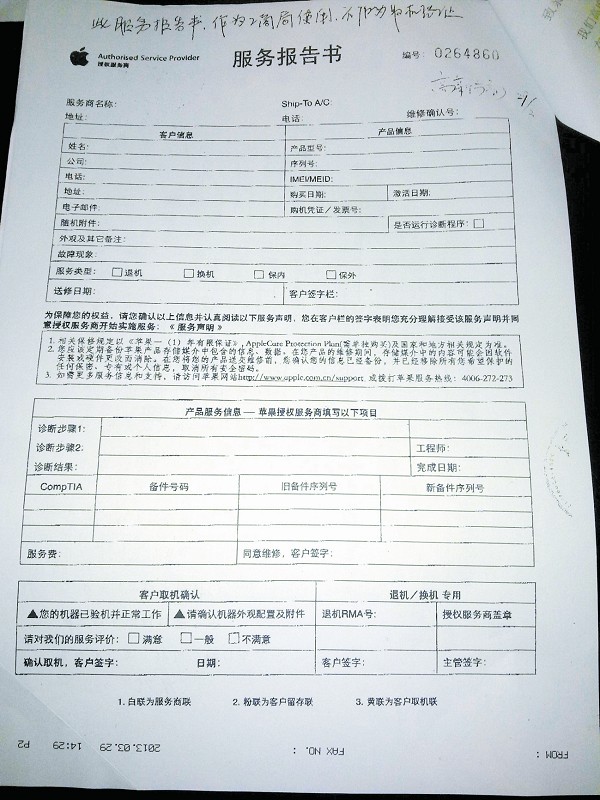 此服务报告书,作为工商局使用,不作为
Authorised Service Provider
授权服务商
服务报告书
编号: 0264860
服务商名称:
Ship-To A/C:
地址:
电话:
维修确认号:
客户信息
产品信息
姓名:
产品型号:
公司:
序列号:
电话:
IMEI/MEID:
地址:
购买日期:
激活日期:
电子邮件:
购机凭证/发票号:
随机附件:
是否运行诊断程序:
外观及其它备注:
故障现象:
服务类型: 退机 换机 保内 保外
送修日期:
客户签字栏:
为保障您的权益,请您确认以上信息并认真阅读以下服务声明,您在客户栏的签字表明您充分理解接受该服务声明并同
意授权服务商开始实施服务:《服务声明》
1. 相关保修规定以《苹果一(1)年有限保证》, AppleCare Protection Plan(需单独购买)及国家和地方相关规定为准。
2. 您应该定期备份苹果产品存储媒介中包含的信息、数据。在您产品的维修期间,存储媒介中的内容可能会因软件
安装或硬件更改而消除。在您将您的产品送交维修前,您确认您的信息已经备份,并已经移除所有您希望保护的
任何保密、专有或个人信息,取消所有安全密码。
3. 如需更多服务信息和支持,请访问苹果网站http://www.apple.com.cn/support 或拨打苹果服务热线: 4006-272-273
产品服务信息 — 苹果授权服务商填写以下项目
诊断步骤1:
诊断步骤2:
工程师:
诊断结果:
完成日期:
CompTIA
备件号码
旧备件序列号
新备件序列号
服务费:
同意维修,客户签字:
客户取机确认
退机/换机 专用
▲您的机器已验机并正常工作
▲请确认机器外观配置及附件
退机RMA号:
授权服务商盖章
请对我们的服务评价: 满意 一般 不满意
确认取机,客户签字:
日期:
客户签字:
主管签字:
1. 白联为服务商联
2. 粉联为客户留存联
3. 黄联为客户取机联
FROM :
FAX NO. :
2013.03.29 14:29 P2